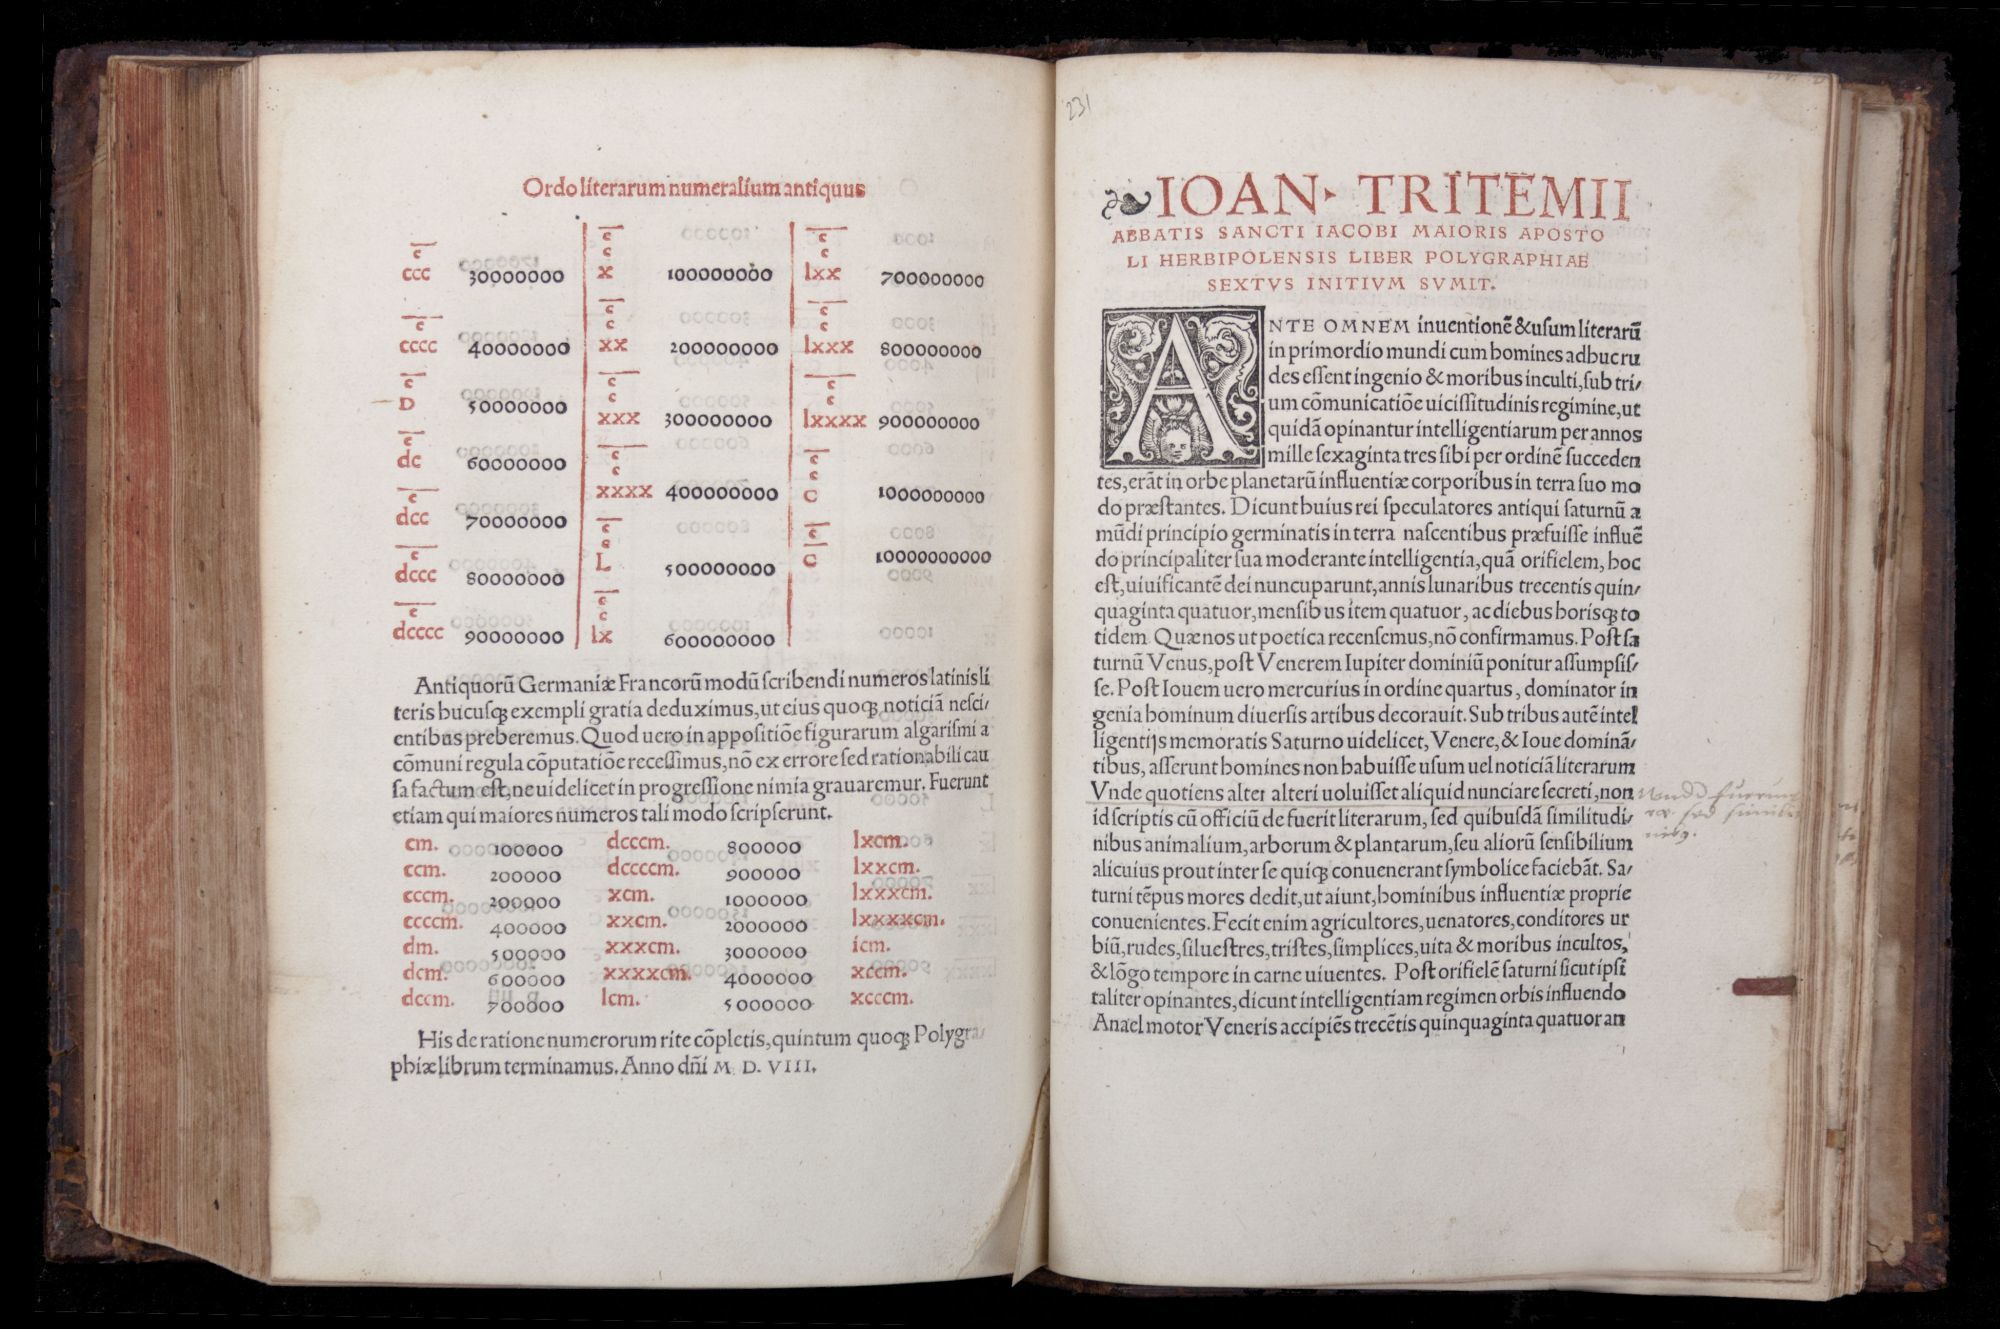 Ordo literarum numeralium antiquus
c
c c
ccc 30000000 x 100000000 lxx 700000000
cccc 40000000 xx 200000000 lxxx 800000000
D 50000000 xxx 300000000 lxxxx 900000000
dc 60000000 xxxx 400000000 C 1000000000
dcc 70000000
dccc 80000000 L 500000000 C 10000000000
dcccc 90000000 lx 600000000
Antiquorũ Germaniæ Francorũ modũ scribendi numeros latinis li
teris hucusqꝫ exempli gratia deduximus, ut eius quoqꝫ noticiã nesci/
entibus preberemus. Quod uero in appositiõe figurarum algarismi a
cõmuni regula cõputatiõe recessimus, nõ ex errore sed rationabili cau
sa factum est, ne uidelicet in progressione nimia grauaremur. Fuerunt
etiam qui maiores numeros tali modo scripserunt.
cm. 100000 dcccm. 800000 lxcm.
ccm. 200000 dccccm. 900000 lxxcm.
cccm. 200000 xcm. 1000000 lxxxcm.
ccccm. 400000 xxcm. 2000000 lxxxxcm.
dm. 500000 xxxcm. 3000000 icm.
dcm. 600000 xxxxcm. 4000000 xccm.
dccm. 700000 lcm. 5000000 xcccm.
His de ratione numerorum rite cõpletis, quintum quoqꝫ Polygra/
phiæ librum terminamus. Anno dñi M. D. VIII.
231
IOAN. TRITEMII
ABBATIS SANCTI IACOBI MAIORIS APOSTO
LI HERBIPOLENSIS LIBER POLYGRAPHIAE
SEXTVS INITIVM SVMIT.
ANTE OMNEM inuentionẽ & usum literarũ
in primordio mundi cum homines adhuc ru
des essent ingenio & moribus inculti, sub tri/
um cõmunicatiõe uicissitudinis regimine, ut
quidã opinantur intelligentiarum per annos
mille sexaginta tres sibi per ordinẽ succeden
tes, erãt in orbe planetarũ influentiæ corporibus in terra suo mo
do præstantes. Dicunt huius rei speculatores antiqui saturnũ a
mũdi principio germinatis in terra nascentibus præfuisse influẽ
do principaliter sua moderante intelligentia, quã orifielem, hoc
est, uiuificantẽ dei nuncuparunt, annis lunaribus trecentis quin/
quaginta quatuor, mensibus item quatuor, ac diebus horisqꝫ to
tidem Quæ nos ut poetica recensemus, nõ confirmamus. Post sa
turnũ Venus, post Venerem Iupiter dominiũ ponitur assumpsis/
se. Post Iouem uero mercurius in ordine quartus, dominator in
genia hominum diuersis artibus decorauit. Sub tribus autẽ intel
ligentijs memoratis Saturno uidelicet, Venere, & Ioue dominã/
tibus, asserunt homines non habuisse usum uel noticiã literarum
Vnde quotiens alter alteri uoluisset aliquid nunciare secreti, non
id scriptis cũ officiũ de fuerit literarum, sed quibusdã similitudi/
nibus animalium, arborum & plantarum, seu aliorũ sensibilium
alicuius prout inter se quiqꝫ conuenerant symbolice faciebãt. Sa/
turni tẽpus mores dedit, ut aiunt, hominibus influentiæ proprie
conuenientes. Fecit enim agricultores, uenatores, conditores ur
biũ, rudes, siluestres, tristes, simplices, uita & moribus incultos,
& lõgo tempore in carne uiuentes. Post orifielẽ saturni sicut ipsi
taliter opinantes, dicunt intelligentiam regimen orbis influendo
Anael motor Veneris accipiẽs trecẽtis quinquaginta quatuor an